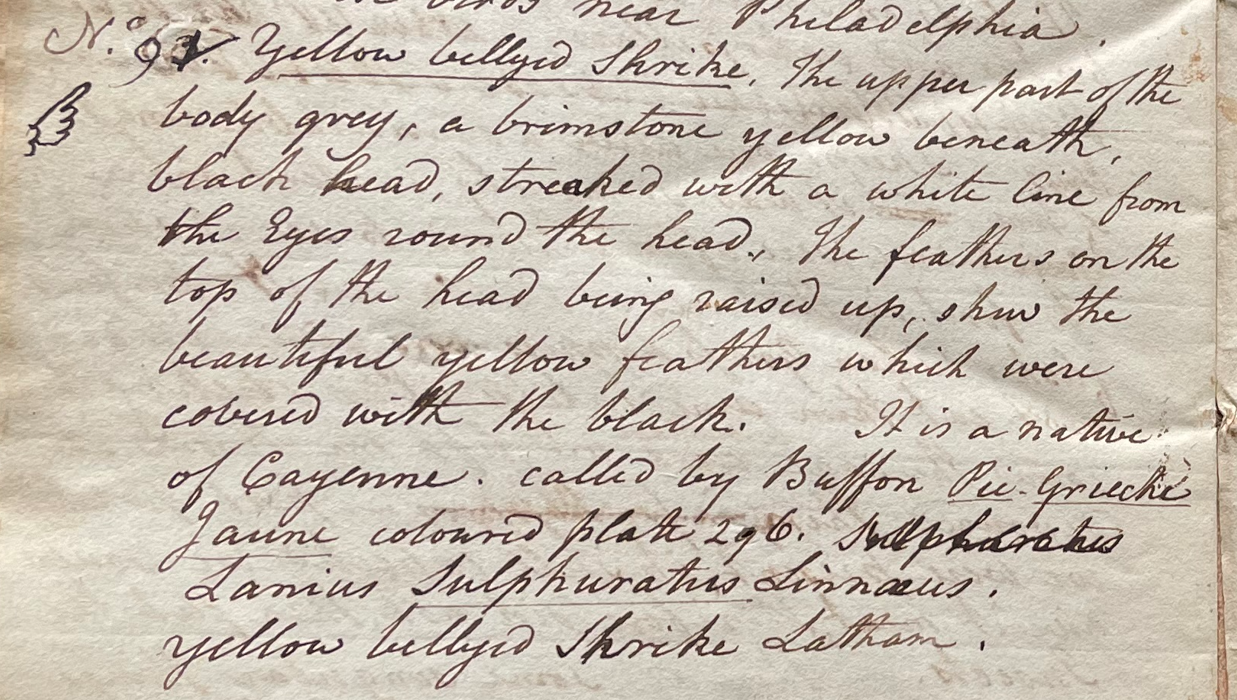 birds near Philadelphia.
N.o 92. Yellow bellyed Shrike. The upper part of the
body grey, a brimstone yellow beneath,
black head, streaked with a white line from
the Eyes round the head. The feathers on the
top of the head being raised up, shew the
beautiful yellow feathers which were
covered with the black. It is a native
of Cayenne. called by Buffon Pie-Grieche
Jaune coloured plate 296. Sulphuratus
Lanius Sulphuratus Linnaeus.
yellow bellyed Shrike Latham.